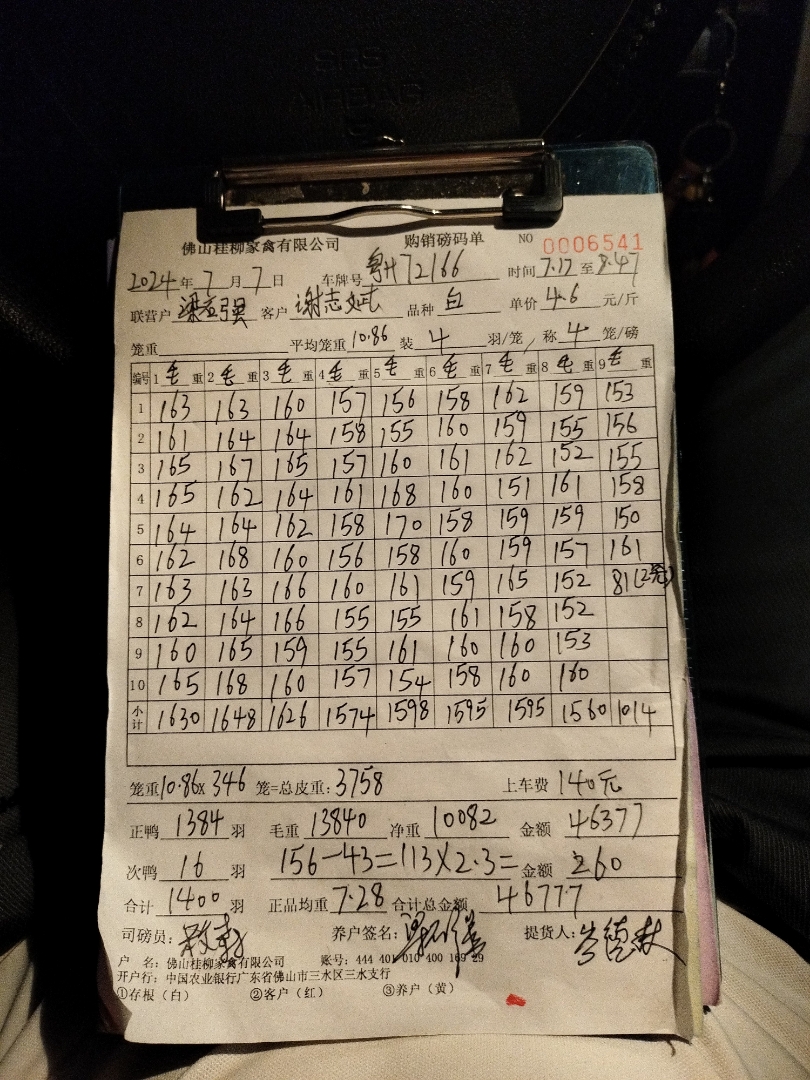 SRS
AIRBAG
佛山桂柳家禽有限公司 购销磅码单 NO 0006541
2024年7月7日 车牌号 粤H72166 时间7.17至8.47
联营户 强 客户 谢志斌 品种 白 单价 4.6 元/斤
笼重 平均笼重 10.86 装 4 羽/笼, 称 4 笼/磅
编号 1毛重 2毛重 3毛重 4毛重 5毛重 6毛重 7毛重 8毛重 9毛重
1 163 163 160 157 156 158 162 159 153
2 161 164 164 158 155 160 159 155 156
3 165 167 165 157 160 161 162 152 155
4 165 162 164 161 168 160 151 161 158
5 164 164 162 158 170 158 159 159 150
6 162 168 160 156 158 160 159 157 161
7 163 163 166 160 161 159 165 152 81(2笼)
8 162 164 166 155 155 161 158 152
9 160 165 159 155 161 160 160 153
10 165 168 160 157 154 158 160 160
小计 1630 1648 1626 1574 1598 1595 1595 1560 1014
笼重10.86×346笼=总皮重:3758 上车费 140元
正鸭 1384 羽 毛重 13840 净重 10082 金额 46377
次鸭 16 羽 156-43=113×2.3= 金额 260
合计 1400 羽 正品均重 7.28 合计总金额 46777
司磅员: 养户签名: 提货人:
户 名:佛山桂柳家禽有限公司 账号:444 401 010 400 169 29
开户行:中国农业银行广东省佛山市三水区三水支行
①存根(白) ②客户(红) ③养户(黄)